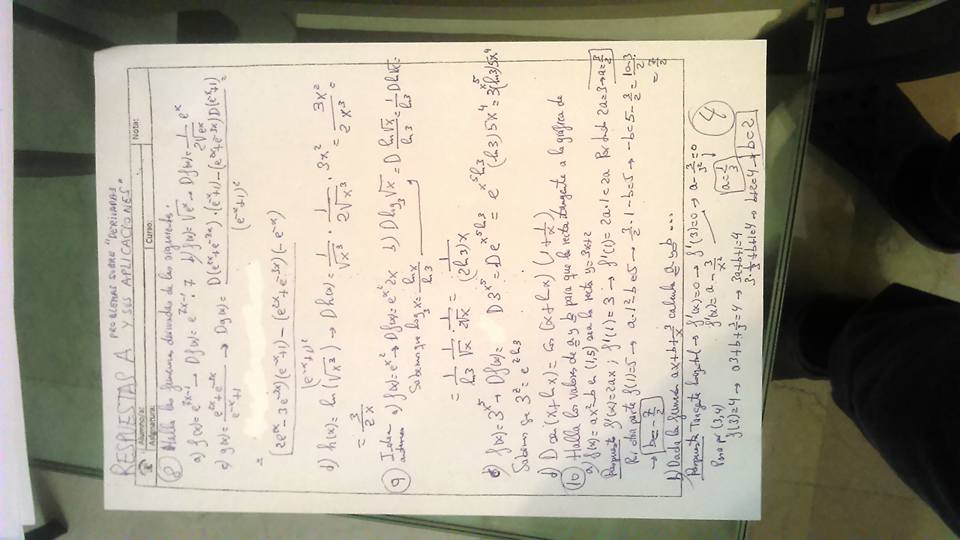 RESPUESTAS A PROBLEMAS SOBRE "DERIVADAS
Y SUS APLICACIONES"
Alumno/a:
Nota:
Asignatura:
Curso:
8 Halla las funciones derivadas de las siguientes.
a) f(x) = e^{7x-1} → Df(x) = e^{7x-1}·7 b) f(x) = √e^x → Df(x) = 1/(2√e^x) e^x
c) g(x) = (e^{2x}+e^{-3x})/(e^{-x}+1) → Dg(x) = (D(e^{2x}+e^{-3x})·(e^{-x}+1) - (e^{2x}+e^{-3x})D(e^{-x}+1))/(e^{-x}+1)^2 =
= ((2e^{2x} - 3e^{-3x})(e^{-x}+1) - (e^{2x}+e^{-3x})(-e^{-x}))/(e^{-x}+1)^2
d) h(x) = ln(√x^3) → Dh(x) = 1/√x^3 · 1/(2√x^3) · 3x^2 = 3x^2/(2x^3) =
= 3/(2x)
9 Idem a) f(x) = e^{x^2} → Df(x) = e^{x^2} 2x b) D log_3 √x = D ln√x/ln3 = 1/ln3 D ln√x =
Sabemos que log_3 x = ln x/ln 3
= 1/ln3 · 1/√x · 1/(2√x) = 1/((2 ln 3)x
f(x) = 3^{x^5} → Df(x) = D 3^{x^5} = D e^{x^5 ln 3} = e^{x^5 ln 3} (ln 3) 5x^4 = 3^{x^5}(ln 3) 5x^4
Sabemos que 3^2 = e^{2 ln 3}
d) D sen (x + ln x) = cos (x + ln x) (1 + 1/x)
10 Halla los valores de a y b para que la recta tangente a la gráfica de
a) f(x) = ax^2 - b en (1,5) sea la recta y = 3x+2
Respuesta f'(x) = 2ax ; f'(1) = 3 → f'(1) = 2a·1 = 2a Por tanto 2a = 3 → a = 3/2
Por otra parte f(1) = 5 → a·1^2 - b = 5 → 3/2·1 - b = 5 → -b = 5 - 3/2 = (10-3)/2 = 7/2
→ b = -7/2
b) Dada la función ax + b + 3/x calcula a y b ...
Respuesta Tangente horizontal → f'(x) = 0 → f'(3) = 0 → a - 3/3^2 = 0
f'(x) = a - 3/x^2
a = 1/3
Pasa por (3,4)
f(3) = 4 → a3 + b + 3/3 = 4 → 3a + b + 1 = 4
3·1/3 + b + 1 = 4 → b + 2 = 4 → b = 2
4